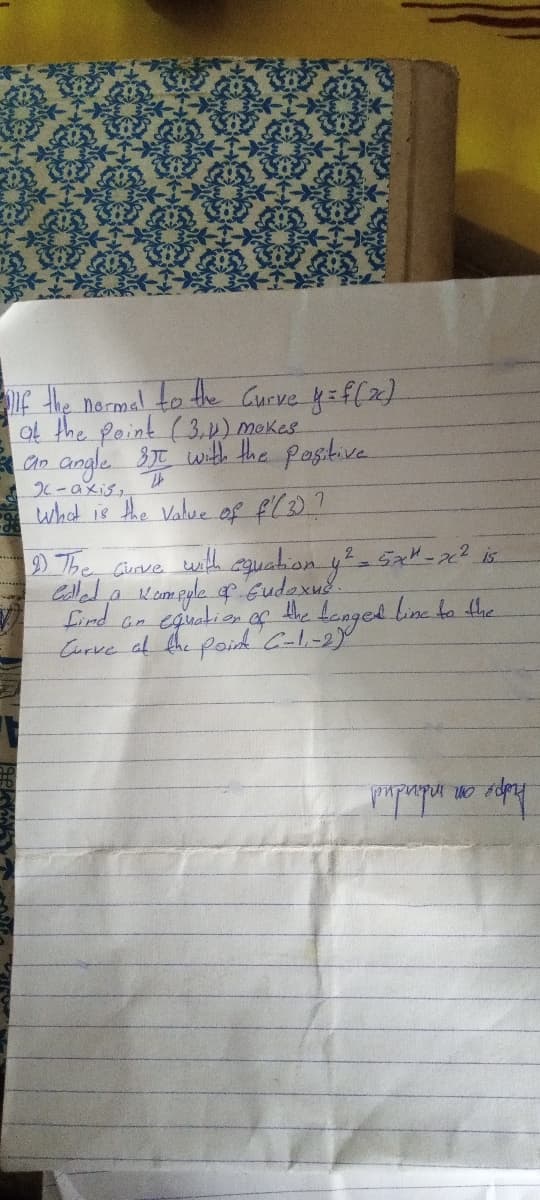 1) If the normal to the Curve y = f(x)
at the point (3,4) makes
an angle 3π/4 with the positive
x-axis,
what is the value of f'(3)?
2) The curve with equation y² = 5x⁴ - x² is
called a Kampyle of Eudoxus.
find an equation of the tanged line to the
Curve at the point (-1,-2)